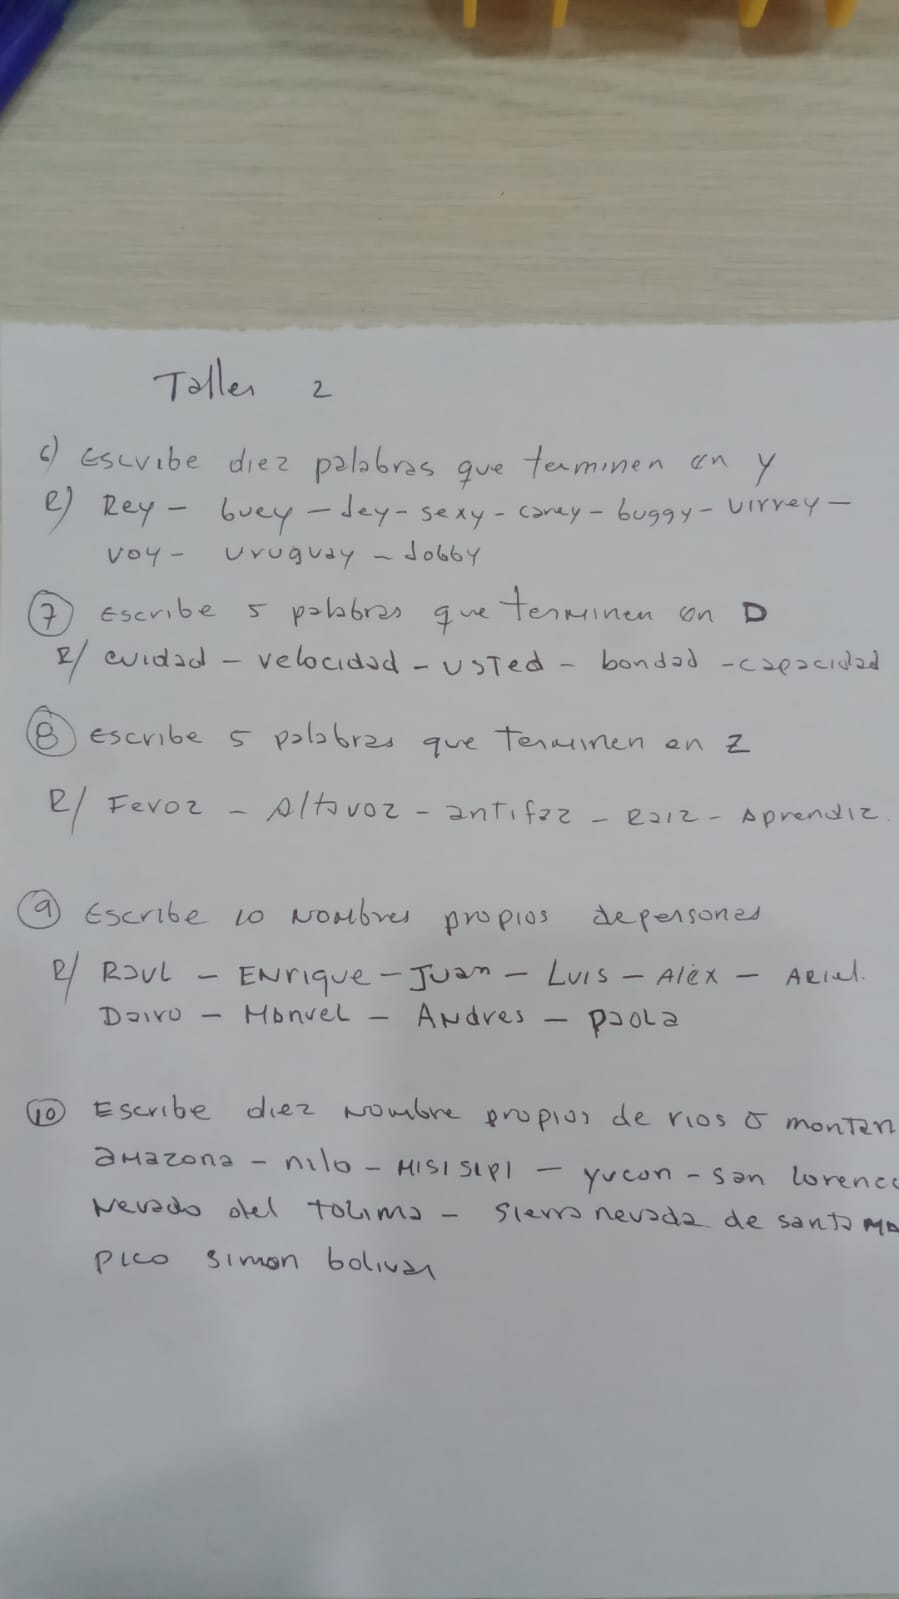 Taller 2
6) Escribe diez palabras que terminen en y
R) Rey - buey - ley - sexy - carey - buggy - virrey -
voy - uruguay - dobby
7 Escribe 5 palabras que terminen en D
R/ cuidad - velocidad - usted - bondad - capacidad
8 Escribe 5 palabras que terminen en Z
R/ Feroz - Altavoz - antifaz - Raiz - Aprendiz.
9 Escribe 10 nombres propios de persones
R/ Raul - Enrique - Juan - Luis - Alex - Ariel.
Dairo - Manuel - Andres - Paola
10 Escribe diez nombre propios de rios o montan
amazona - nilo - misisipi - yucon - san lorenc
Nevado del tolima - sierra nevada de santa ma
pico simon bolivar